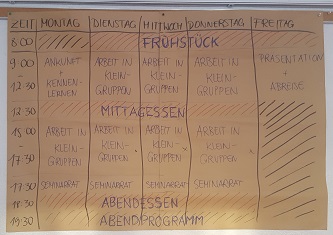 ZEIT MONTAG DIENSTAG MITTWOCH DONNERSTAG FREITAG
8:00 FRÜHSTÜCK
9:00 - 12:30 ANKUNFT + KENNEN- LERNEN ARBEIT IN KLEIN- GRUPPEN ARBEIT IN KLEIN- GRUPPEN ARBEIT IN KLEIN- GRUPPEN PRÄSENTATION + ABREISE
12:30 MITTAGESSEN
15:00 - 17:30 ARBEIT IN KLEIN- GRUPPEN ARBEIT IN KLEIN- GRUPPEN ARBEIT IN KLEIN- GRUPPEN ARBEIT IN KLEIN- GRUPPEN
17:30 SEMINARRAT SEMINARRAT SEMINARRAT SEMINARRAT
18:30 ABENDESSEN
19:30 ABENDPROGRAMM